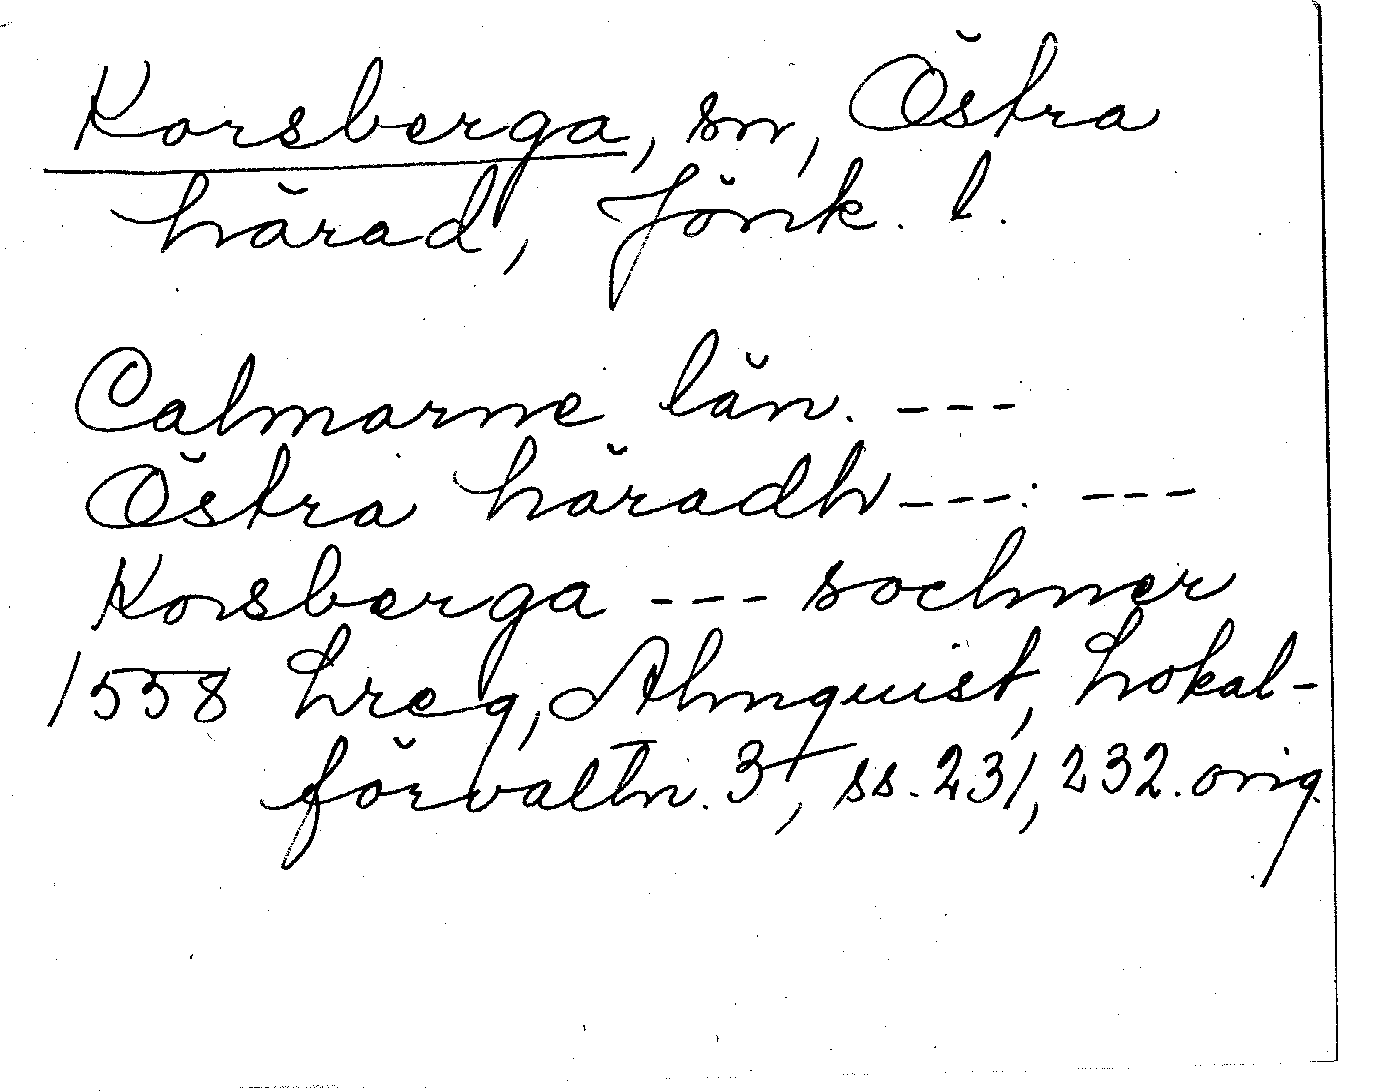 Korsberga, sn, Östra
härad, Jönk. l.
Calmarne län. ---
Östra häradh ---: ---
Korsberga --- sochner
1558 hreg, Almquist, Lokal-
förvaltn. 3, ss. 231, 232. orig.